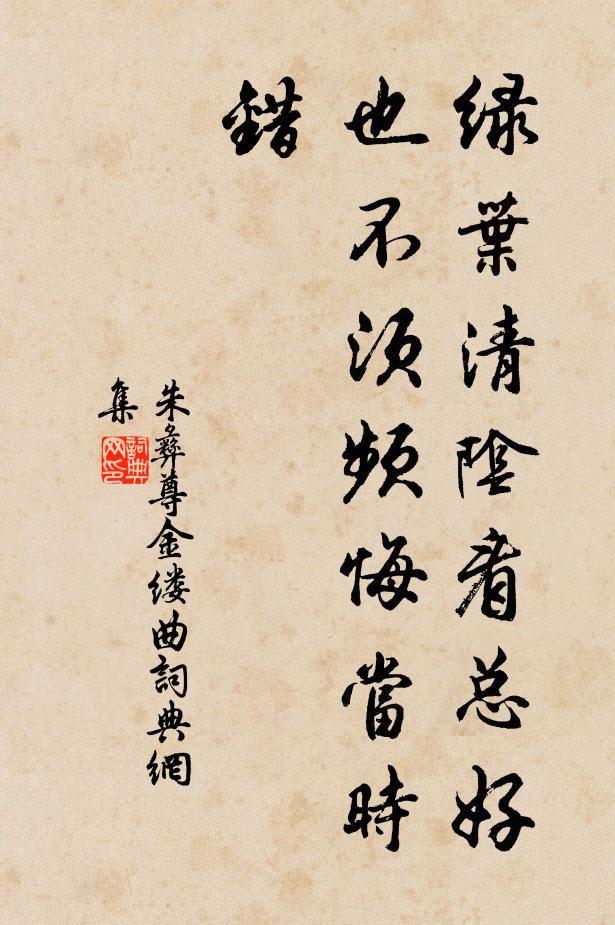 绿葉清陰看总好
也不须頻悔當時
錯
朱彝尊金缕曲詞典網
集
詞典
网印